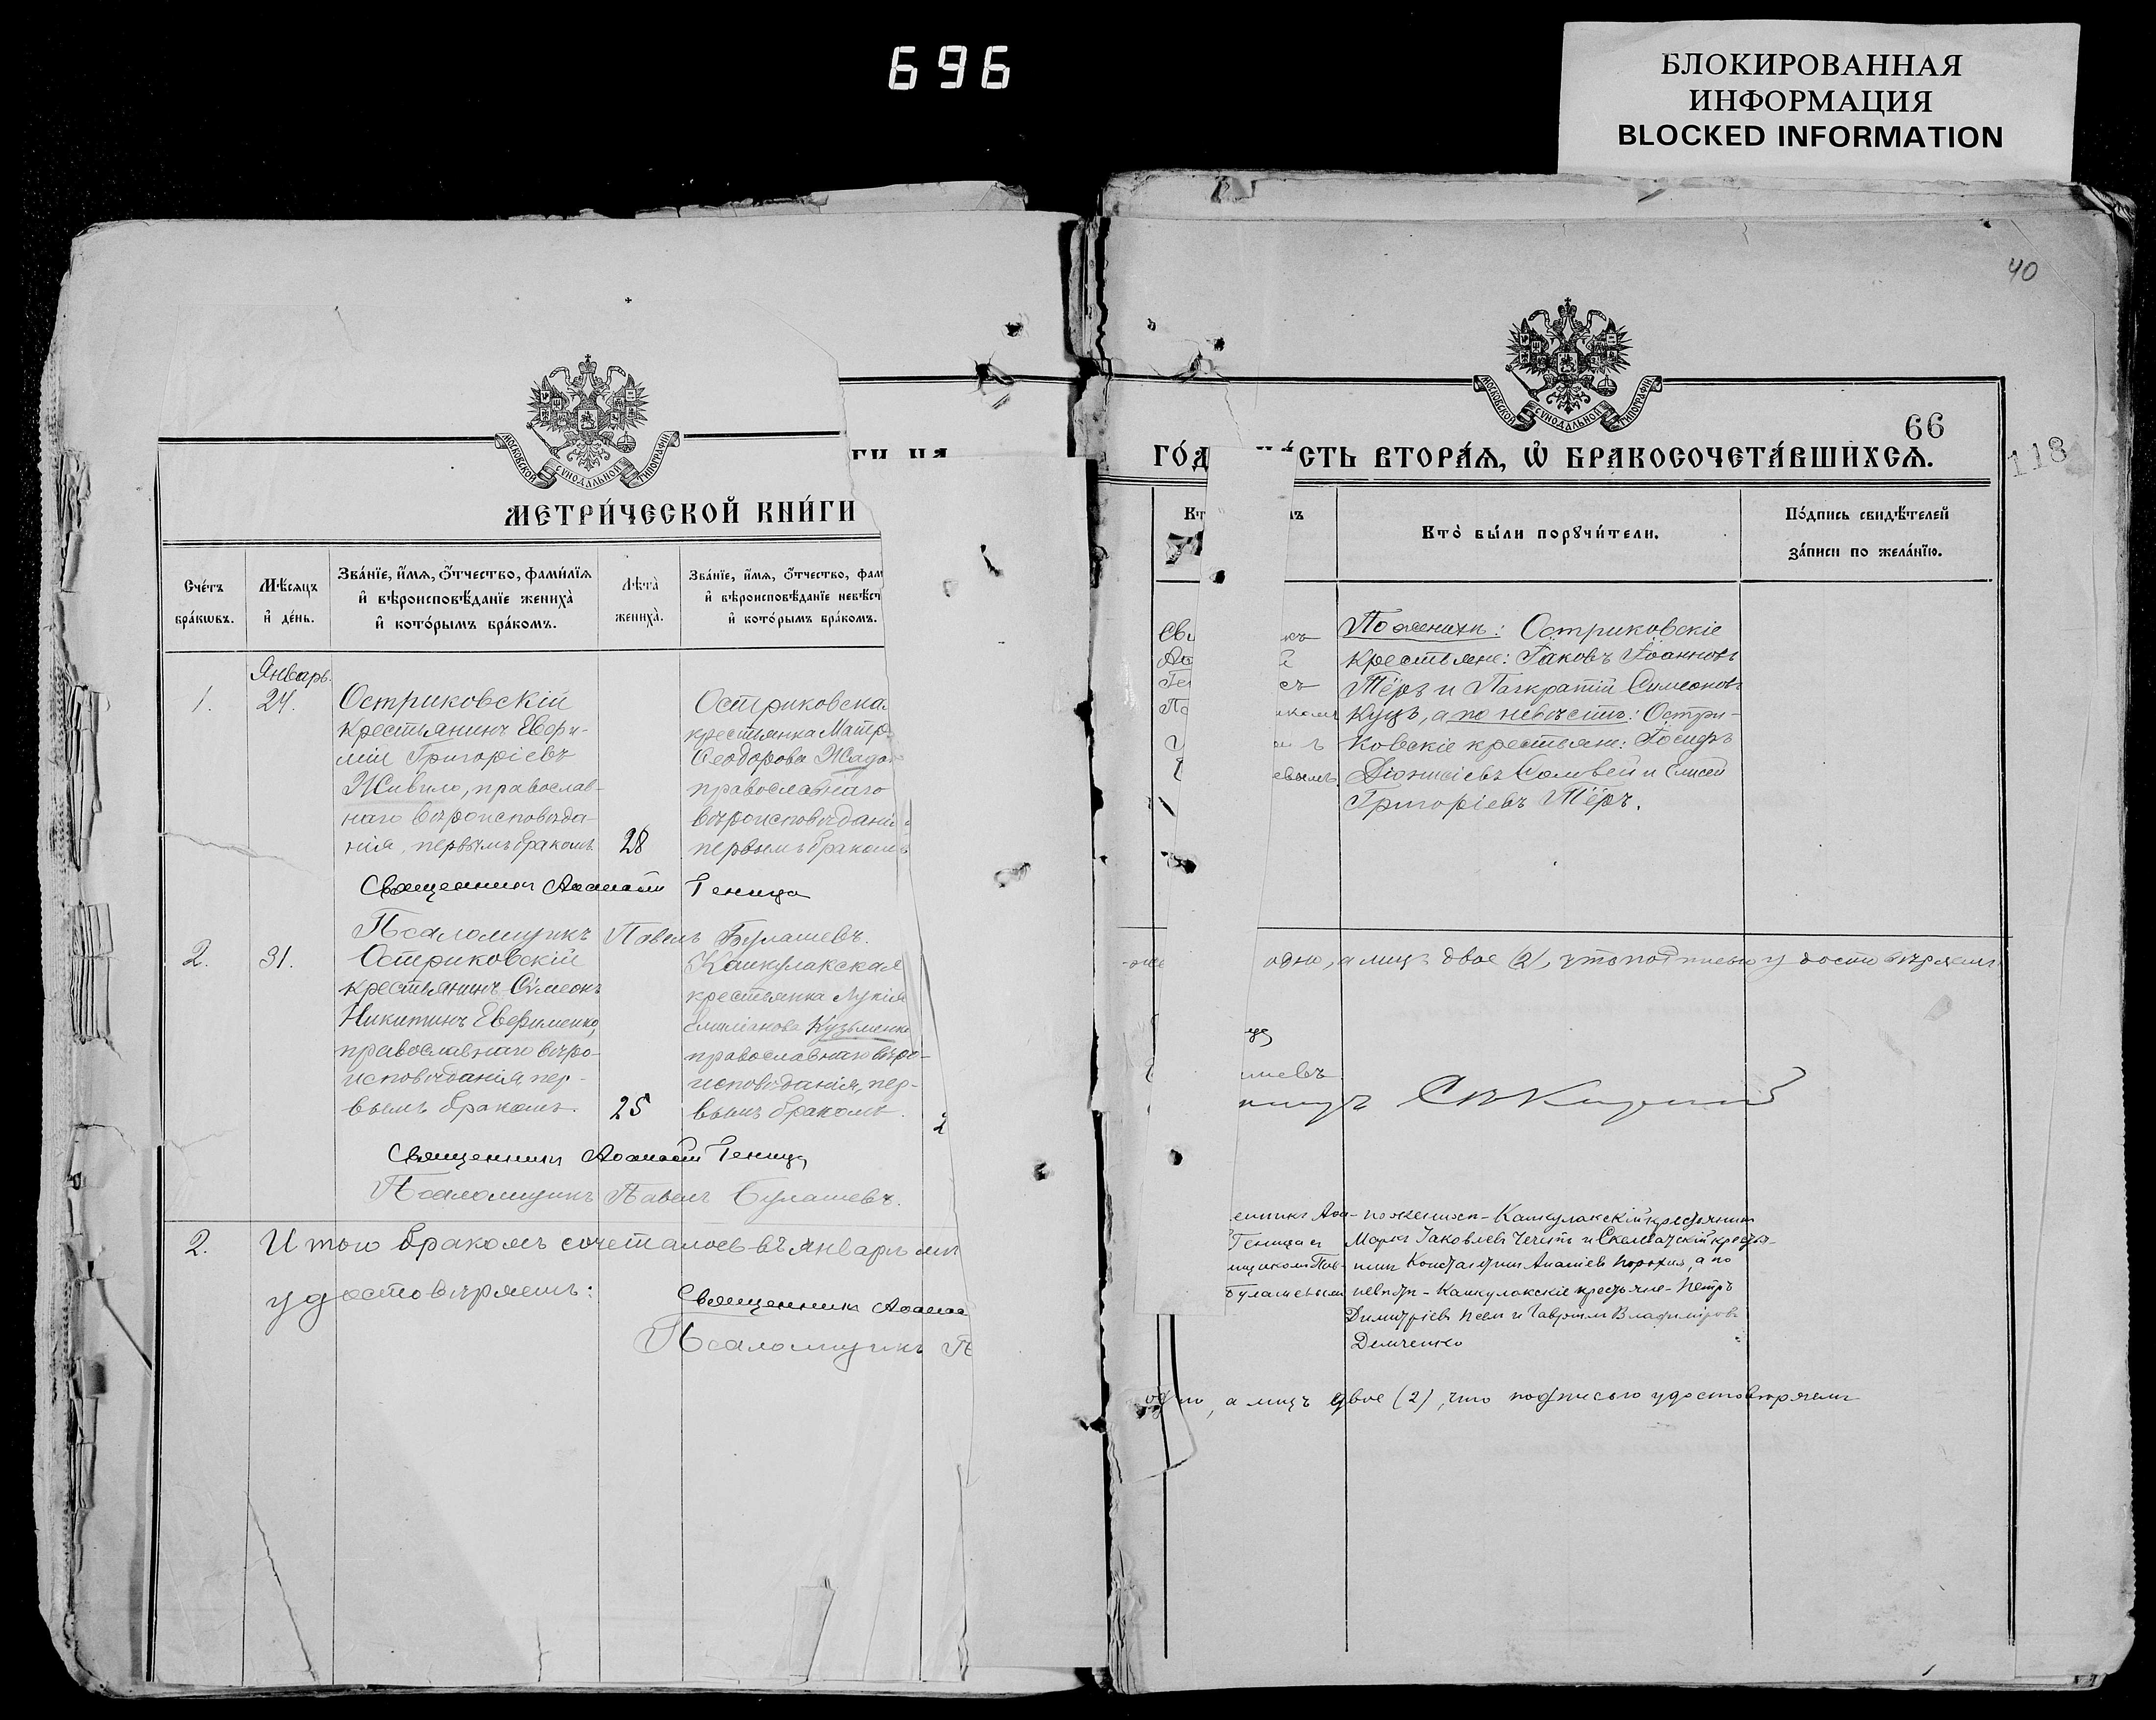 696
БЛОКИРОВАННАЯ
ИНФОРМАЦИЯ
BLOCKED INFORMATION
МОСКОВСКОЙ СѴНОДАЛЬНОЙ ТИПОГРАФІИ
МЕТРИ́ЧЕСКОЙ КНИ́ГИ
Сче́тъ
бра́кѡвъ.
Мѣ́сяцъ
и҆ де́нь.
Зва́нїе, и҆́мя, ѻ҆́тчество, фами́лїя
и҆ вѣроисповѣ́данїе жениха̀
и҆ кото́рымъ бра́комъ.
Лѣ́та
жениха̀.
Зва́нїе, и҆́мя, ѻ҆́тчество, фам
и҆ вѣроисповѣ́данїе невѣ́ст
и҆ кото́рымъ бра́комъ.
Январь
1.
24.
Остриковскій
крестьянинъ Евфи-
мій Григоріевъ
Живило, православ-
наго вѣроисповѣда-
нія, первымъ бракомъ
28
Остриковска
крестьянка Матро
Ѳеодорова Жадо
православнаго
вѣроисповѣданія
первымъ бракомъ
Священникъ Аѳанасій Геница
Псаломщикъ Павелъ Булашевъ.
2.
31.
Остриковскій
крестьянинъ Сѵмеонъ
Никитинъ Евфименко,
православнаго вѣро-
исповѣданія, пер-
вымъ бракомъ.
25
Канкулакская
крестьянка Лукія
Емиліанова Кузьменко
православнаго вѣро-
исповѣданія, пер-
вымъ бракомъ.
2
Священникъ Аѳанасій Геница
Псаломщикъ Павелъ Булашевъ.
2. Итого бракомъ сочеталось въ Январѣ мѣ
удостовѣряемъ:
Священникъ Аѳанас
Псаломщикъ П
40
МОСКОВСКОЙ СѴНОДАЛЬНОЙ ТИПОГРАФІИ
66
118
ГО́Д СТЬ ВТОРА́Ѧ, Ѡ҆ БРАКОСОЧЕТА́ВШИХСѦ.
Кто̀ бы́ли порꙋчи́тели.
По́дпись свидѣ́телей
за́писи по жела́нїю.
По женихѣ: Остриковскіе
крестьяне: Іаковъ Іоанновъ
Тёръ и Панкратій Симеоновъ
Куцъ, а по невѣстѣ: Остри-
ковскіе крестьяне: Іосифъ
Діонисіевъ Соловей и Елисей
Григоріевъ Тёръ.
одно, а лицъ двое (2), что подписью удостовѣряемъ
енникъ Аѳа- по женихѣ - Канкулакскій крестьянинъ
Геница и Маркъ Іаковлевъ и крестья-
нинъ Константинъ Порохня, а по
Булашевымъ невѣстѣ - Канкулакскіе крестьяне - Петръ
Димитріевъ и Гавріилъ Владиміровъ
Демченко
одно, а лицъ двое (2), что подписью удостовѣряемъ